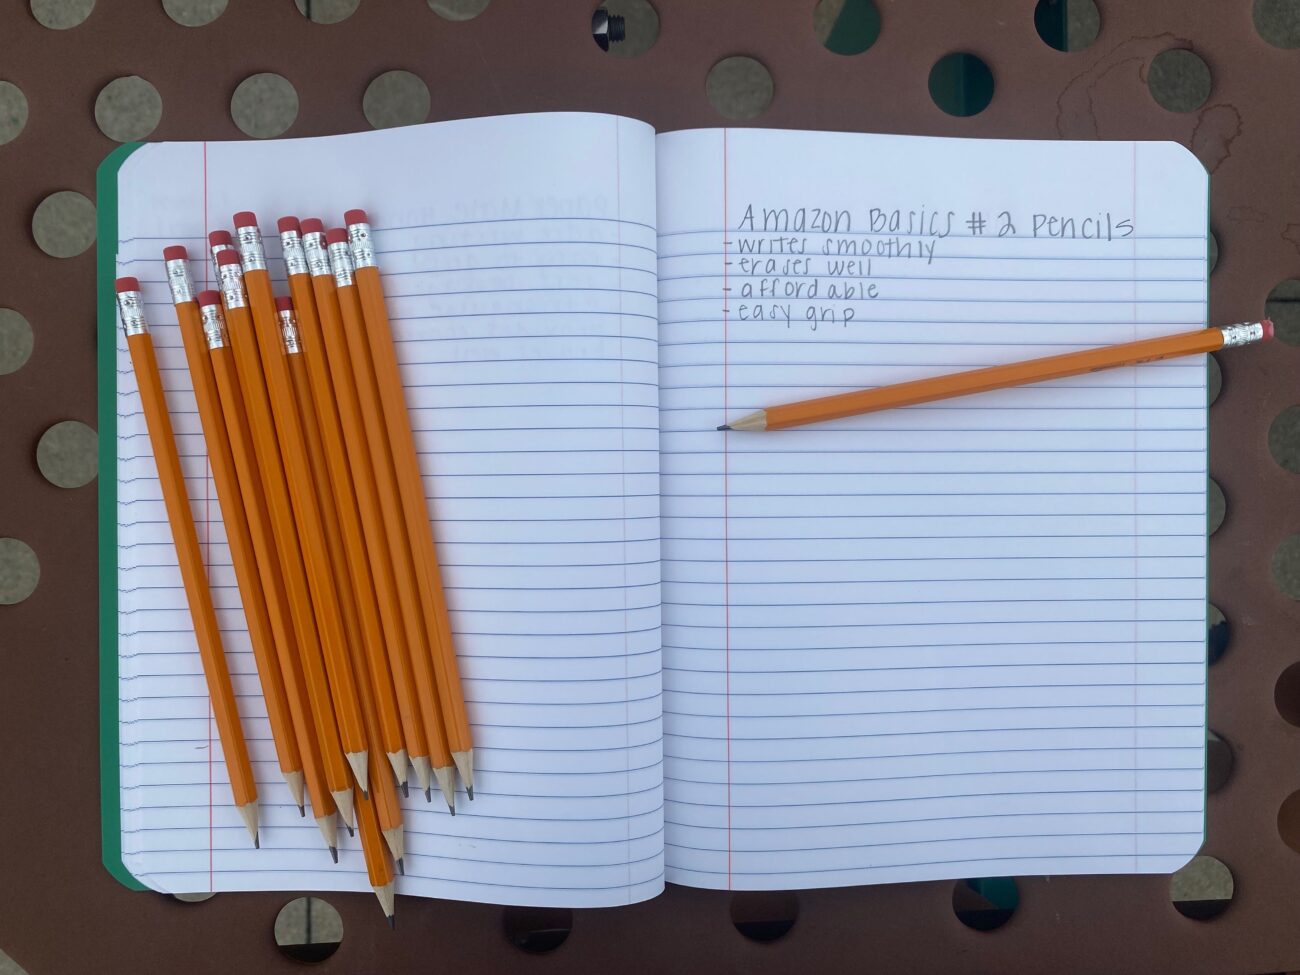 Amazon Basics #2 Pencils
- writes smoothly
- erases well
- affordable
- easy grip